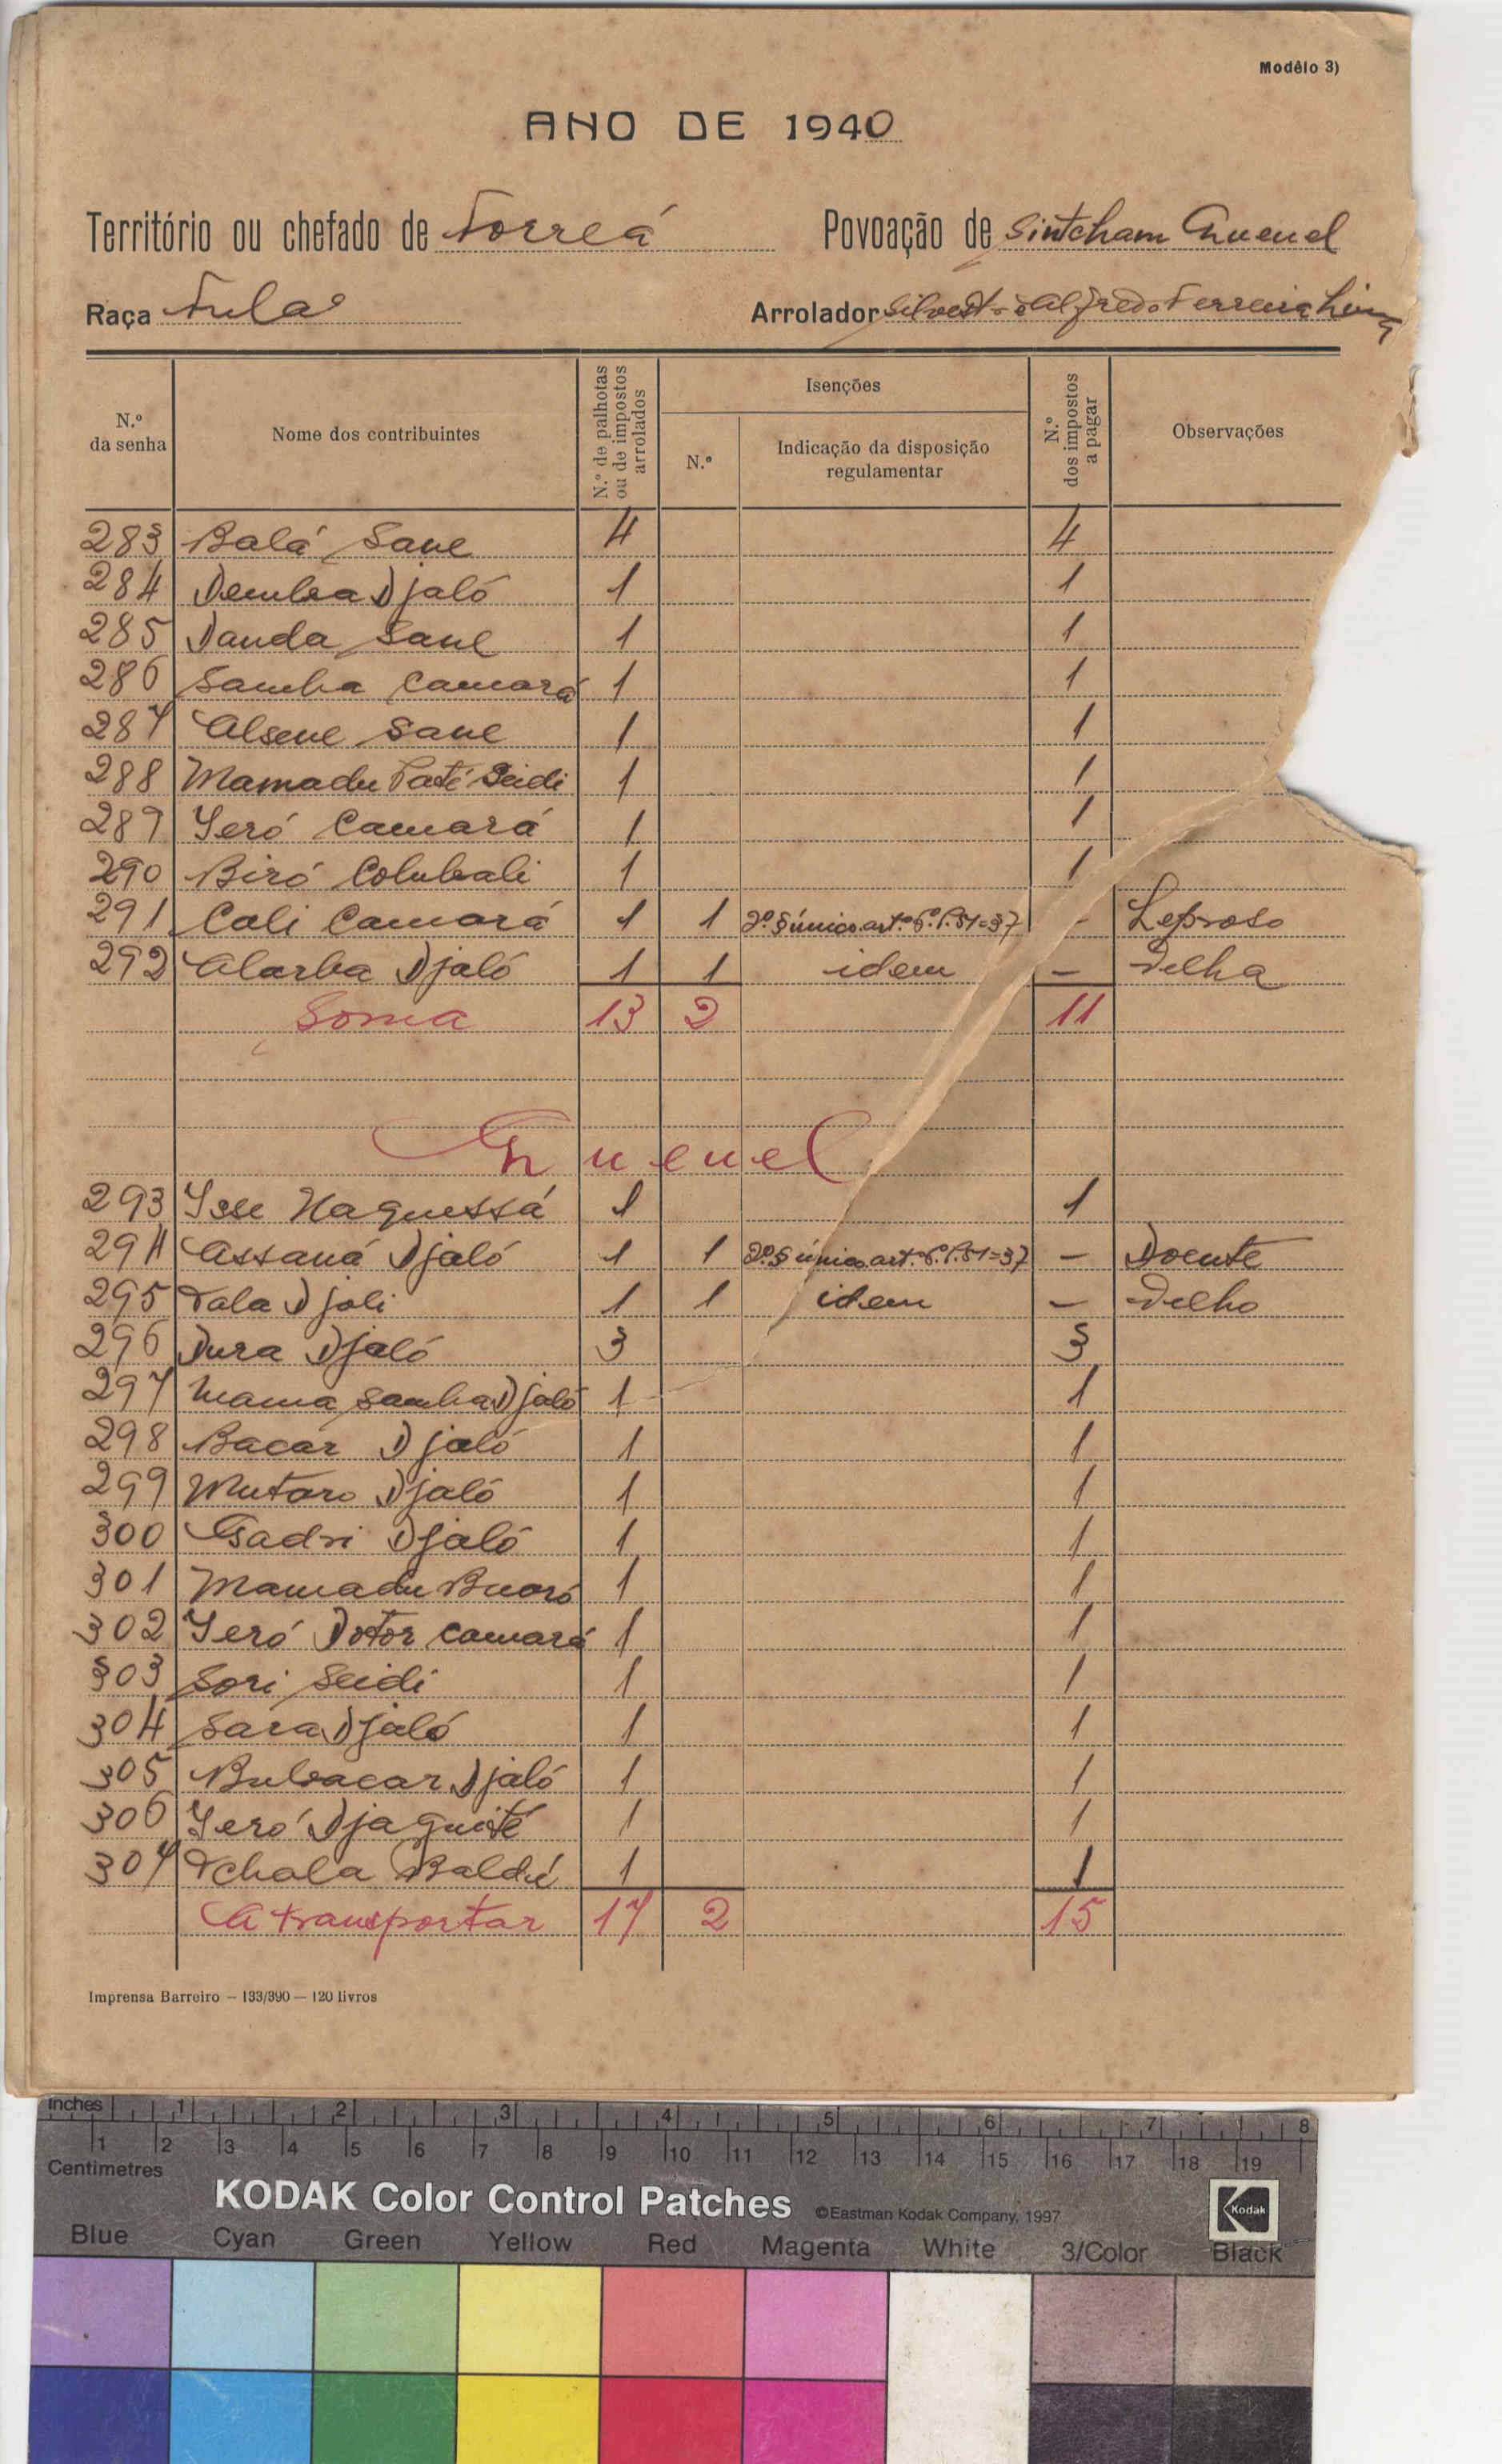 Modêlo 3)
ANO DE 1940
Território ou chefado de Forreá Povoação de Sintcham Guenel
Raça Fulas Arrolador Silvestre Alfredo Ferreira Lima
N.º da senha
Nome dos contribuintes
N.º de palhotas ou de impostos arrolados
Isenções
N.º
Indicação da disposição regulamentar
N.º dos impostos a pagar
Observações
283 Balá Sane 4 4
284 Demba Djaló 1 1
285 Dauda Sane 1 1
286 Samba Camará 1 1
287 Alsene Sane 1 1
288 Mamadu Paté Seidi 1 1
289 Ieró Camará 1 1
290 Biró Colubali 1 1
291 Cali Camará 1 1 2º § único art.º 6º P. 51=37 - Leproso
292 Alarba Djaló 1 1 idem - Velha
Soma 13 2 11
Guenel
293 Isse Naguessá 1 1
294 Assaná Djaló 1 1 2º § único art.º 6º P. 51=37 - Doente
295 Tala Djoli 1 1 idem - Velho
296 Dura Djaló 3 3
297 Mama Samba Djaló 1 1
298 Bacar Djaló 1 1
299 Mutaro Djaló 1 1
300 Gadri Djaló 1 1
301 Mamadu Buaró 1 1
302 Ieró Dotor Camará 1 1
303 Sori Seidi 1 1
304 Sara Djaló 1 1
305 Bubacar Djaló 1 1
306 Ieró Djaguité 1 1
307 Tchala Baldé 1 1
A transportar 17 2 15
Imprensa Barreiro — 133/390 — 120 livros
Inches 1 2 3 4 5 6 7 8
1 2 3 4 5 6 7 8 9 10 11 12 13 14 15 16 17 18 19
Centimetres
KODAK Color Control Patches ©Eastman Kodak Company, 1997 Kodak
Blue Cyan Green Yellow Red Magenta White 3/Color Black